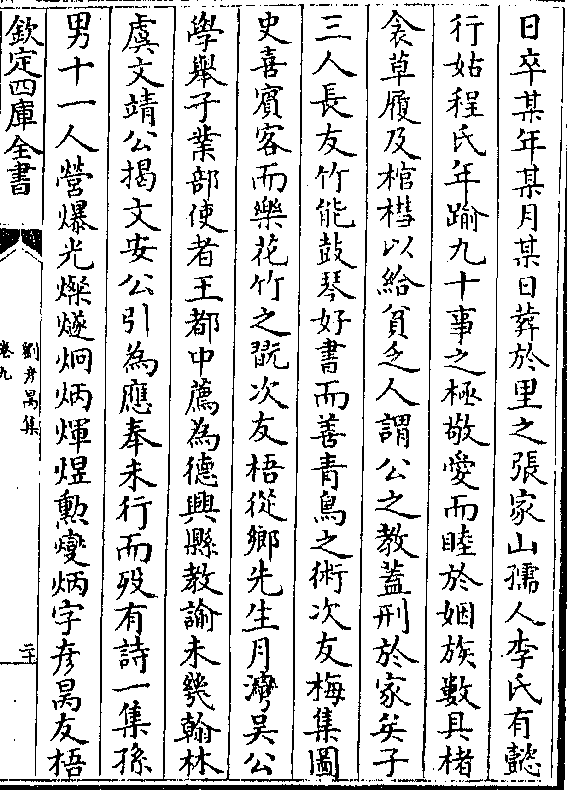 日卒某年某月某日葬於里之張家山孺人李氏有懿
行姑程氏年踰九十事之極敬愛而睦於姻族數具楮
衾草履及棺槥以給貧乏人謂公之教蓋刑於家矣子
三人長友竹能鼓琴好書而善青鳥之術次友梅集圖
史喜賓客而樂花竹之翫次友梧從鄉先生月灣吳公
學舉子業部使者王都中薦為德興縣教諭未幾翰林
虞文靖公揭文安公引為應奉未行而歿有詩一集孫
男十一人營爆光爍燧炯炳煇煜勲燮炳字彦昺友梧
欽定四庫全書
劉彦昺集
卷九
二十